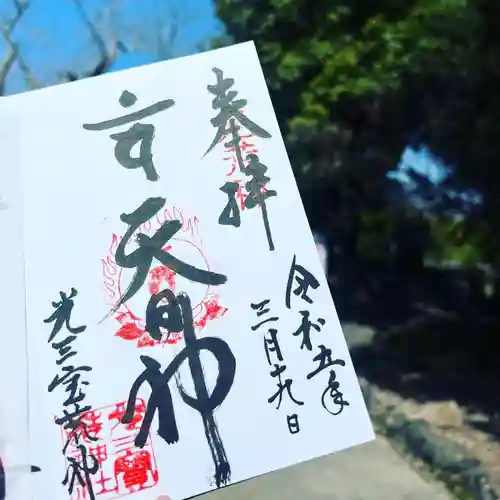 奉拝
令和五年
三月十九日
天明神
光三宝荒神